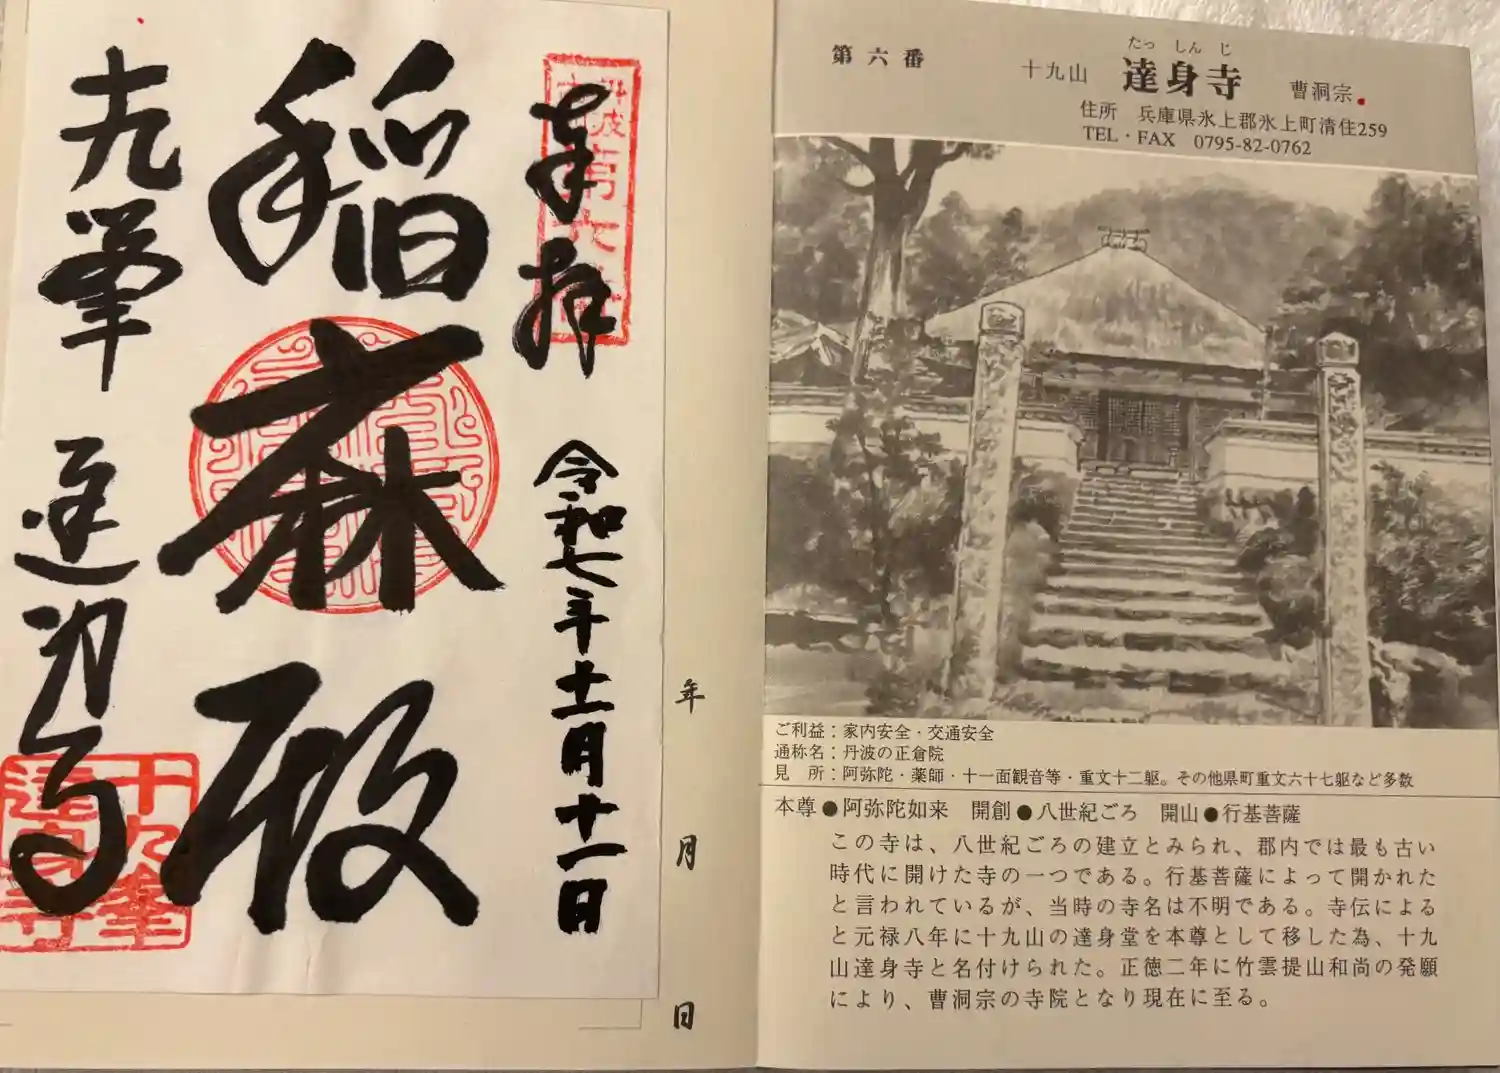 奉拝
令和七年十一月十一日
丹波
第六番
稲麻殿
十九峯
達身寺
十九峯
達身寺
年
月
日
第六番
たっしんじ
十九山 達身寺 曹洞宗
住所 兵庫県氷上郡氷上町清住259
TEL・FAX 0795-82-0762
ご利益：家内安全・交通安全
通称名：丹波の正倉院
見 所：阿弥陀・薬師・十一面観音等・重文十二躯。その他県町重文六十七躯など多数
本尊●阿弥陀如来 開創●八世紀ごろ 開山●行基菩薩
この寺は、八世紀ごろの建立とみられ、郡内では最も古い
時代に開けた寺の一つである。行基菩薩によって開かれた
と言われているが、当時の寺名は不明である。寺伝による
と元禄八年に十九山の達身堂を本尊として移した為、十九
山達身寺と名付けられた。正徳二年に竹雲提山和尚の発願
により、曹洞宗の寺院となり現在に至る。